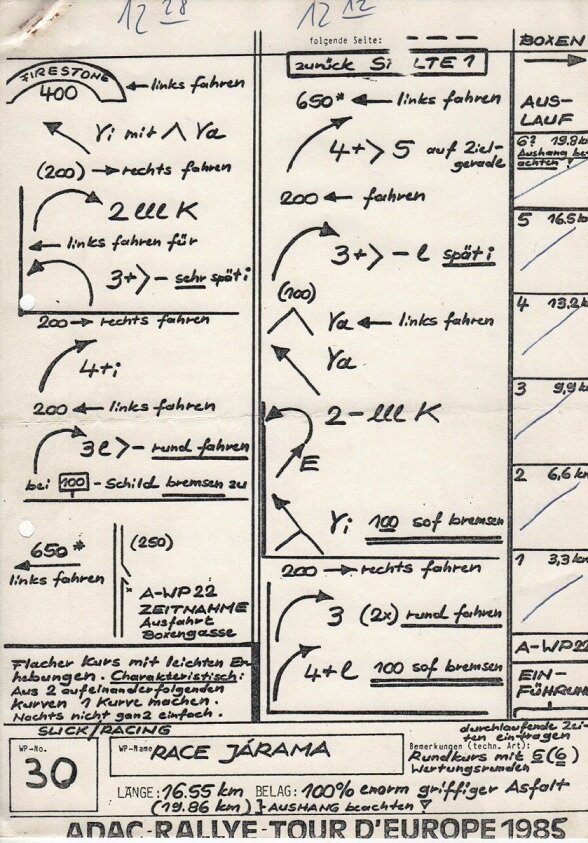 12 28
12 12
folgende Seite:
FIRESTONE
400
links fahren
Yi mit Λ Ya
(200) → rechts fahren
2 lll K
links fahren für
3+> - sehr spät i
200 → rechts fahren
4+i
200 ← links fahren
3l>- rund fahren
bei 100 - Schild bremsen zu
650*
links fahren
(250)
A-WP 22
ZEITNAHME
Ausfahrt
Boxengasse
Flacher Kurs mit leichten Er-
hebungen. Charakteristisch:
Aus 2 aufeinanderfolgenden
Kurven 1 Kurve machen.
Nachts nicht ganz einfach.
zurück S LTE 1
650* ← links fahren
4+> 5 auf Ziel-
gerade
200 ← fahren
3+> - l spät i
(100)
Ya ← links fahren
Ya
2 - lll K
E
Yi 100 sof bremsen
200 → rechts fahren
3 (2x) rund fahren
4+l 100 sof bremsen
BOXEN
AUS-
LAUF
6? 19.8 k
Aushang be-
achten ?
5 16.5 k
4 13,2 k
3 9,9 k
2 6,6 k
1 3,3 k
A-WP 22
EIN-
FÜHRUN
durchlaufende Zei-
ten eintragen
SLICK/RACING
WP-No.
30
WP-Name
RACE JÁRAMA
Bemerkungen (techn. Art):
Rundkurs mit 5(6)
Wertungsrunden
LÄNGE: 16.55 km BELAG: 100% enorm griffiger Asfalt
(19.86 km) } AUSHANG beachten
ADAC-RALLYE-TOUR D'EUROPE 1985